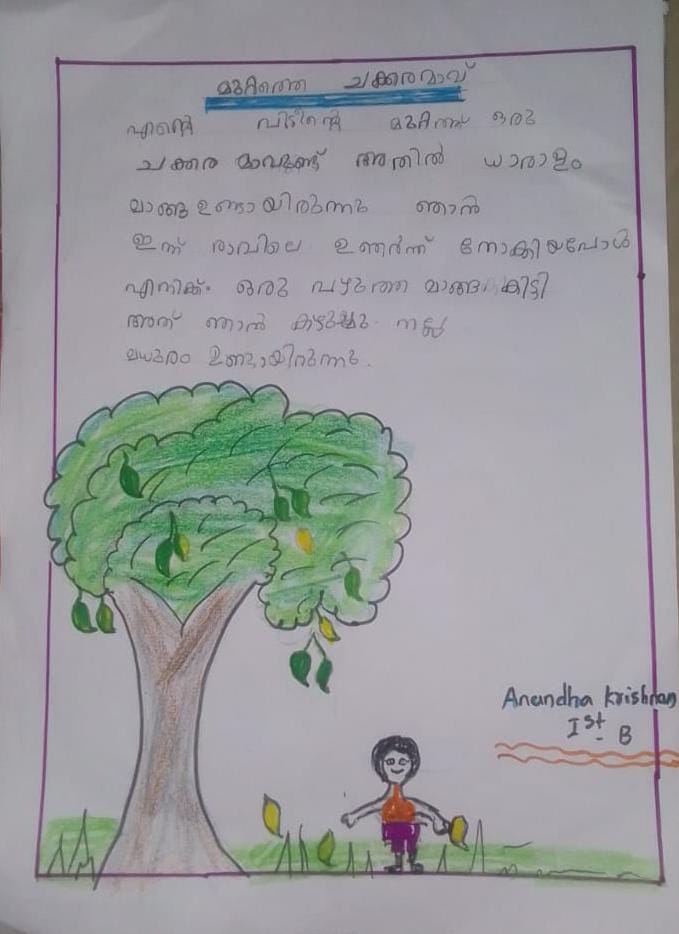 മുറ്റത്തെ ചക്കരമാവ്
എന്റെ വീടിന്റെ മുറ്റത്ത് ഒരു
ചക്കര മാവുണ്ട് അതിൽ ധാരാളം
മാങ്ങ ഉണ്ടായിരുന്നു ഞാൻ
ഇന്ന് രാവിലെ ഉണർന്ന് നോക്കിയപോൾ
എനിക്ക് ഒരു പഴുത്ത മാങ്ങ കിട്ടി
അത് ഞാൻ കഴുച്ചു. നല്ല
മധുരം ഉണ്ടായിരുന്നു.
Anandha Krishnan
Ist B